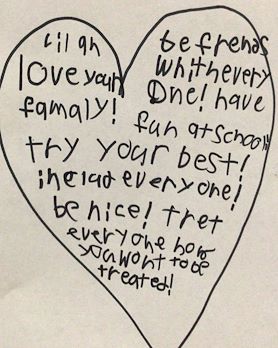 lilah
love your
famaly!
be frends
whith every
One! have
fun at school!
try your best!
inclad everyone!
be nice! tret
everyone how
you wont to be
treated!